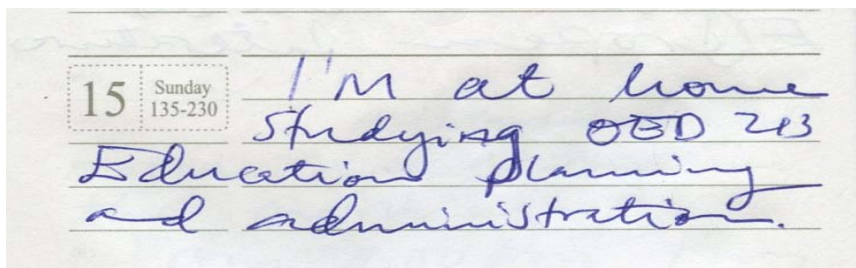 15 Sunday
135-230
I'M at home
studying OED 213
Education planning
and administration.